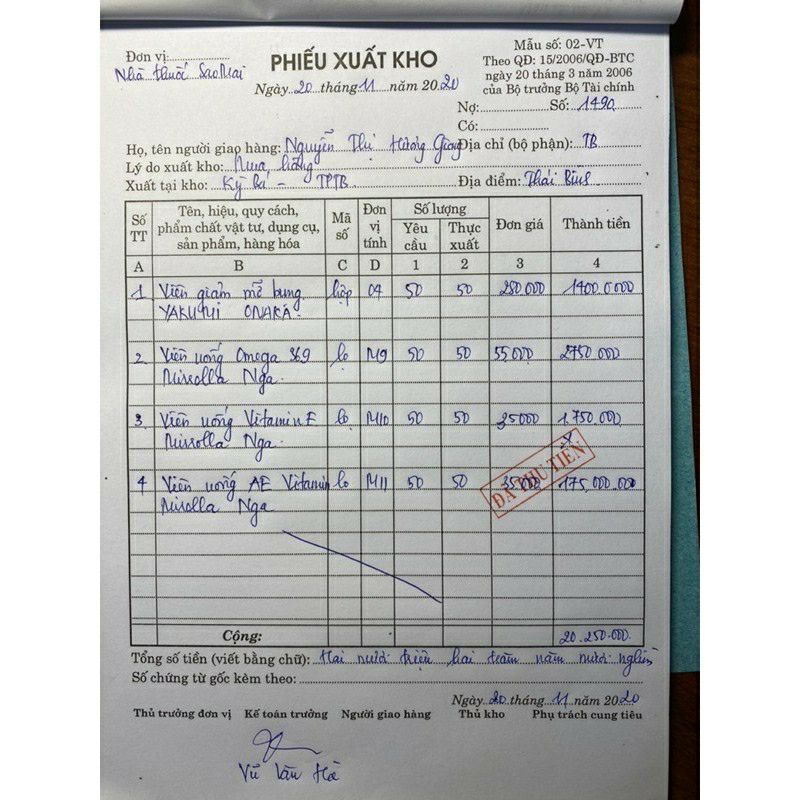 Đơn vị:
Nhà thuốc Sao Mai
PHIẾU XUẤT KHO
Ngày 20 tháng 11 năm 2020
Mẫu số: 02-VT
Theo QĐ: 15/2006/QĐ-BTC
ngày 20 tháng 3 năm 2006
của Bộ trưởng Bộ Tài chính
Nợ: Số: 1490
Có:
Họ, tên người giao hàng: Nguyễn Thị Hương Giang Địa chỉ (bộ phận): TB
Lý do xuất kho: Mua hàng
Xuất tại kho: Kỳ Bá - TPTB Địa điểm: Thái Bình
Số TT Tên, hiệu, quy cách, phẩm chất vật tư, dụng cụ, sản phẩm, hàng hóa Mã số Đơn vị tính Số lượng Yêu cầu Thực xuất Đơn giá Thành tiền
A B C D 1 2 3 4
1 Viên giảm mỡ bụng hộp 04 50 50 280.000 1400.0.000
YAKUSHI ONAKA
2 Viên uống Omega 369 lọ M9 50 50 55,000 2750.000
Mirrolla Nga
3 Viên uống Vitamin E lọ M10 50 50 35000 1.750.000
Mirrolla Nga
4 Viên uống AE Vitamin lọ M11 50 50 35000 175,000.000
Mirolla Nga
ĐÃ THU TIỀN
Cộng: 20.250.000
Tổng số tiền (viết bằng chữ): Hai mươi triệu hai trăm năm mươi nghìn
Số chứng từ gốc kèm theo:
Ngày 20 tháng 11 năm 2020
Thủ trưởng đơn vị Kế toán trưởng Người giao hàng Thủ kho Phụ trách cung tiêu
Vũ Văn Hà